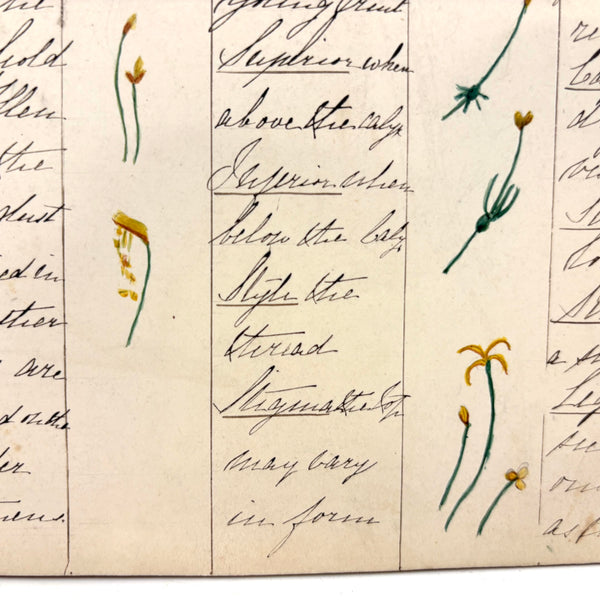 the
hold
the
dust
ed in
ther
are
d on the
der
mens.
young fruit
Superior when
above the caly
Inferior when
below the Caly
Style the
thread
Stigma the top
may vary
in form
re
d
a s
su
on
as